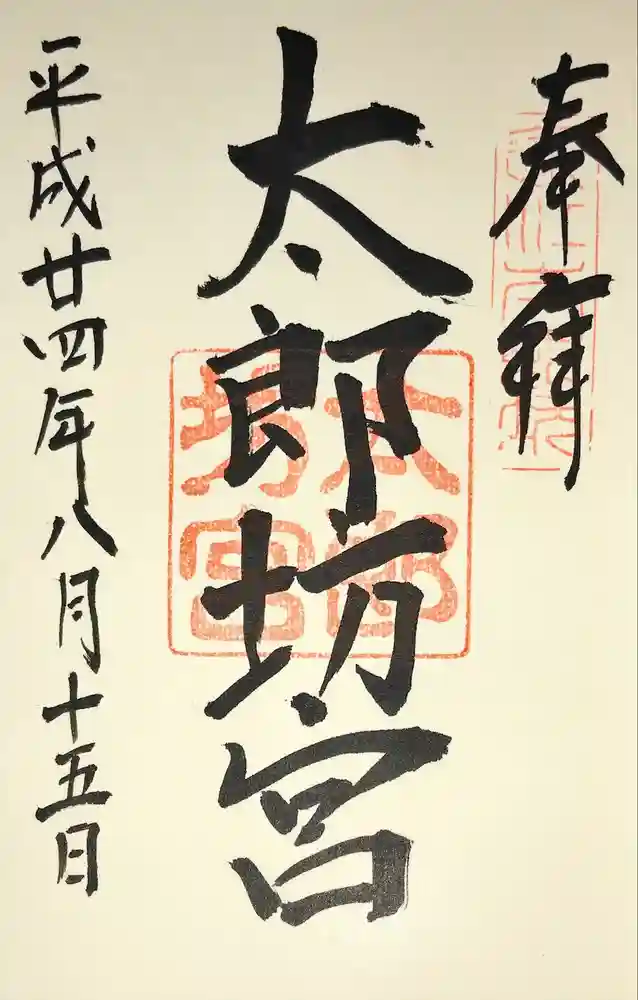 奉拜
太郎坊宮
太郎坊宮
平成廿四年八月十五日